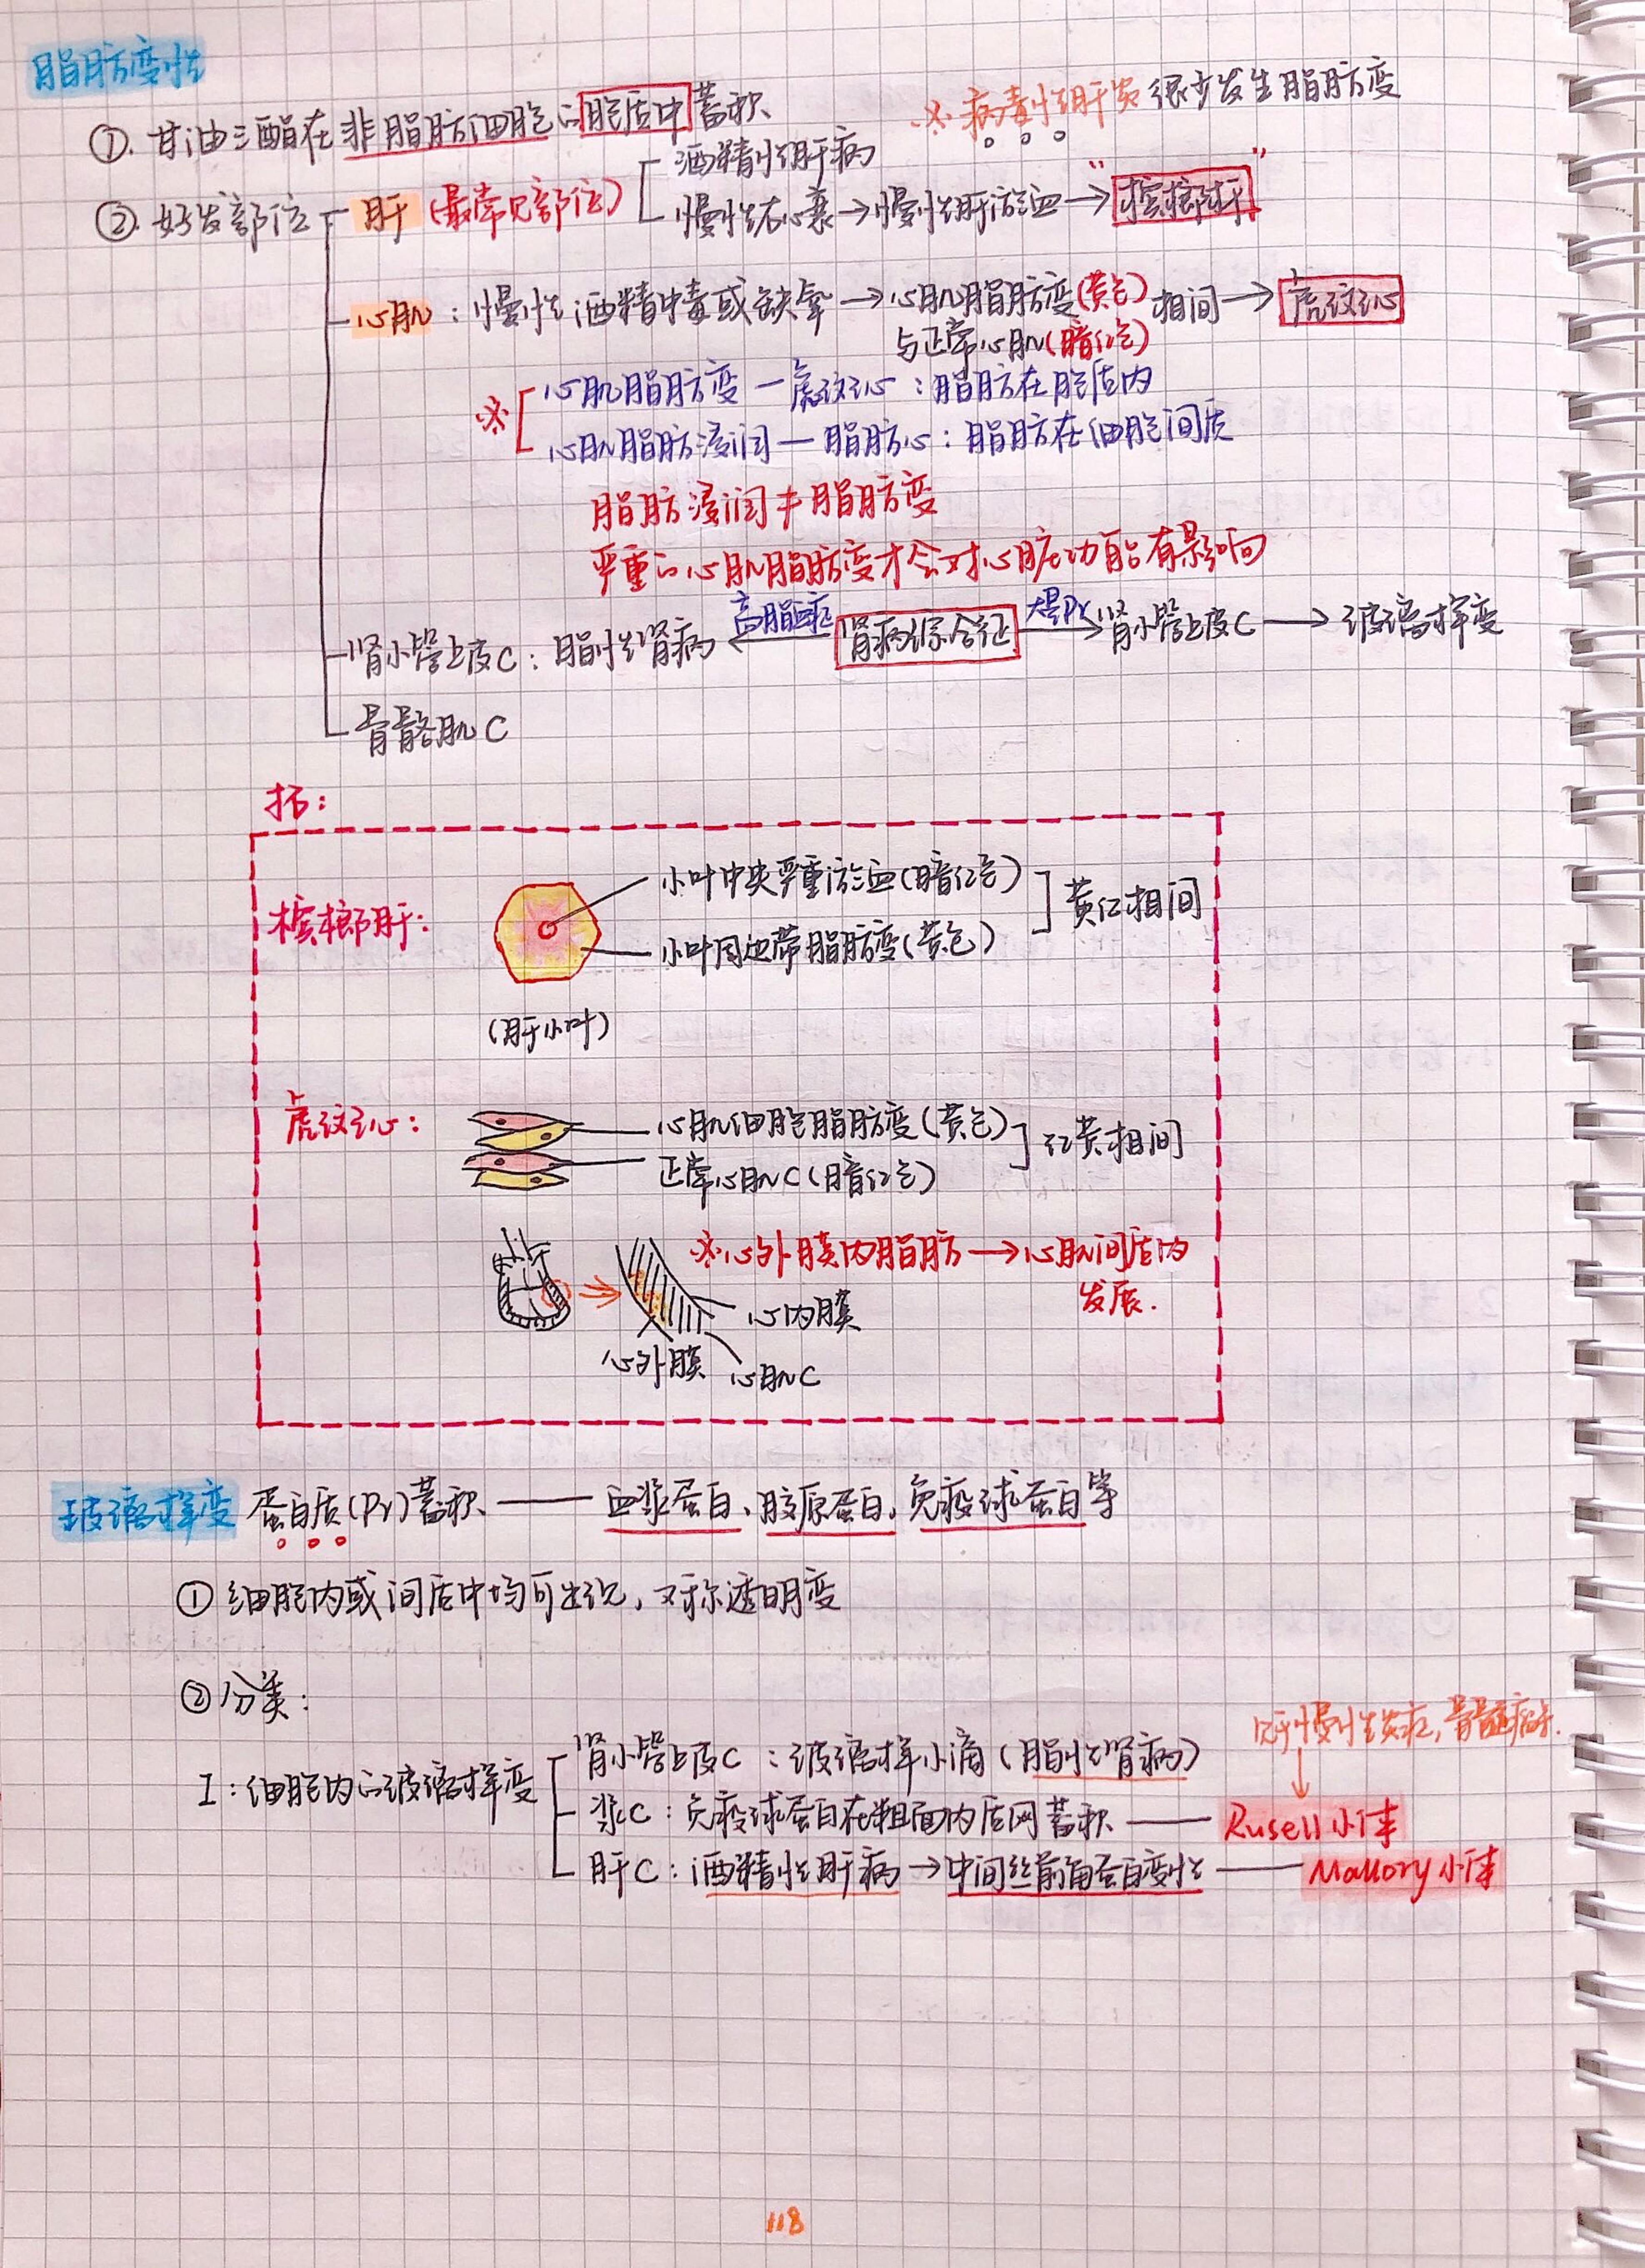 脂肪变性
※病毒性肝炎很少发生脂肪变
①. 甘油三酯在非脂肪细胞的胞质中蓄积
②. 好发部位 肝 (最常见部位) 酒精性肝病
慢性右心衰→慢性肝淤血→"槟榔肝"
心肌: 慢性酒精中毒或缺氧→心肌脂肪变(黄色) 相间→虎纹心
与正常心肌(暗红色)
※ 心肌脂肪变—虎纹心: 脂肪在胞质内
心肌脂肪浸润—脂肪心: 脂肪在细胞间质
脂肪浸润≠脂肪变
严重的心肌脂肪变才会对心脏功能有影响
肾小管上皮C: 脂性肾病 ←高脂血症 肾病综合征 大量Pr→肾小管上皮C→玻璃样变
骨骼肌C
拓:
槟榔肝: 小叶中央严重淤血(暗红色)
小叶周边带脂肪变(黄色) 黄红相间
(肝小叶)
虎纹心: 心肌细胞脂肪变(黄色) 红黄相间
正常心肌C(暗红色)
※心外膜内脂肪→心肌间质内
发展.
心内膜
心外膜 心肌C
玻璃样变 蛋白质(Pr)蓄积——血浆蛋白、胶原蛋白、免疫球蛋白等
① 细胞内或间质中均可出现, 又称透明变
② 分类:
见于慢性炎症, 骨髓瘤.
I: 细胞内的玻璃样变 肾小管上皮C: 玻璃样小滴(脂性肾病)
浆C: 免疫球蛋白在粗面内质网蓄积——Rusell小体
肝C: 酒精性肝病→中间丝前角蛋白变性——Mallory小体
118